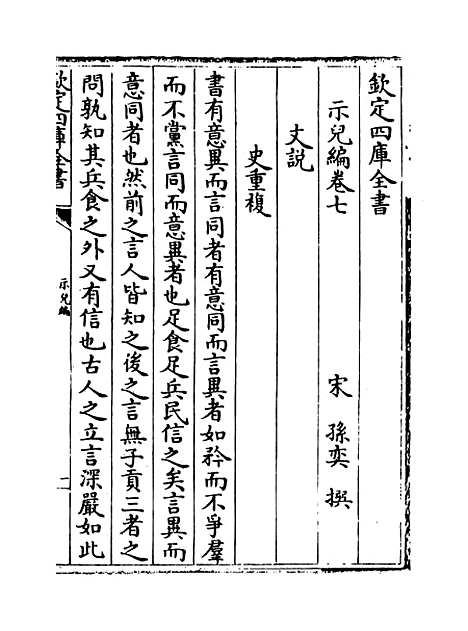 欽定四庫全書
示兒編卷七
宋 孫奕 撰
文説
史重複
書有意異而言同者有意同而言異者如矜而不爭羣
而不黨言同而意異者也足食足兵民信之矣言異而
意同者也然前之言人皆知之後之言無子貢三者之
問孰知其兵食之外又有信也古人之立言深嚴如此
欽定四庫全書
示兒編